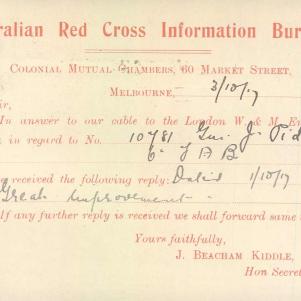 ralian Red Cross Information Bur
Colonial Mutual Chambers, 60 Market Street,
Melbourne, 3/10/17
ir,
In answer to our cable to the London W. & M. En
in regard to No. 10781 Gnr J. Tid
6th F A B
e received the following reply: Dated 1/10/17
Great improvement
If any further reply is received we shall forward same
Yours faithfully,
J. Beacham Kiddle,
Hon Secret